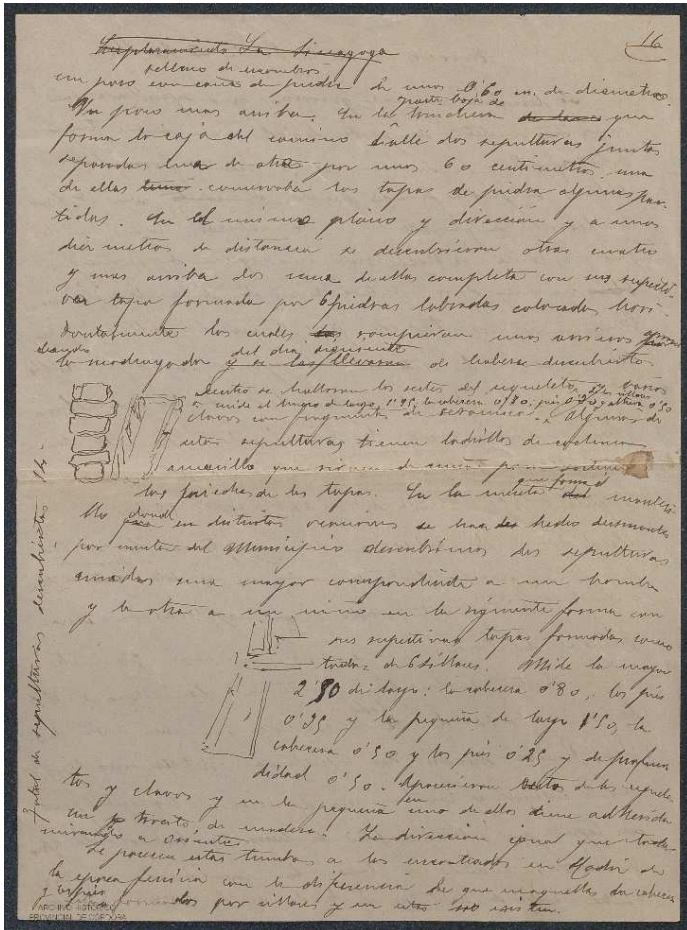 16
relleno de escombros
un pozo con caña de piedra de unos 0'60 m. de diametro.
Un poco mas arriba. En la parte baja de trinchera que
forma la caja del camino halle dos sepulturas juntas
separadas una de otra por unos 60 centimetros. una
de ellas conservaba las tapas de piedra algunas par-
tidas. En el mismo plano y dirección y a unos
diez metros de distancia se descubrieron otras cuatro
y mas arriba dos una de ellas completa con sus respecti-
vas tapa formada por 6 piedras labradas colocadas hori-
zontalmente las cuales rompieron unos
la madrugada del dia siguiente de haberse descubierto
Dentro se hallaron los restos del esqueleto, varios
mide el largo 1'95, la cabecera 0'80, pies 0'50
clavos con fragmentos de ceramica. Algunas de
estas sepulturas tienen ladrillos de
amarillo que sirven de para
las piedras de las tapas. En la meseta que forma el
donde en distintas ocasiones se han hecho desmontes
por cuenta del Municipio descubrimos dos sepulturas
unidas una mayor correspondiente a un hombre
y la otra a un niño en la siguiente forma con
sus respectivas tapas formadas como
todas de 6 sillares. Mide la mayor
de largo: la cabecera 0'80, los pies
y la pequeña de largo 1'50, la
cabecera 0'50 y los pies 0'25 y de profun
didad 0'50. Aparecieron restos de los esquele-
tos y clavos y en la pequeña en uno de ellos tiene adherida
un trocito de madera. La dirección igual que todas
mirando a oriente
Se parecen estas tumbas a las encontradas en Cadiz de
la epoca fenicia con la diferencia de que aquellas la cabecera
y los pies formados por sillares y en estas no existen.
Total de sepulturas descubiertas
ARCHIVO HISTÓRICO
PROVINCIAL DE CÓRDOBA